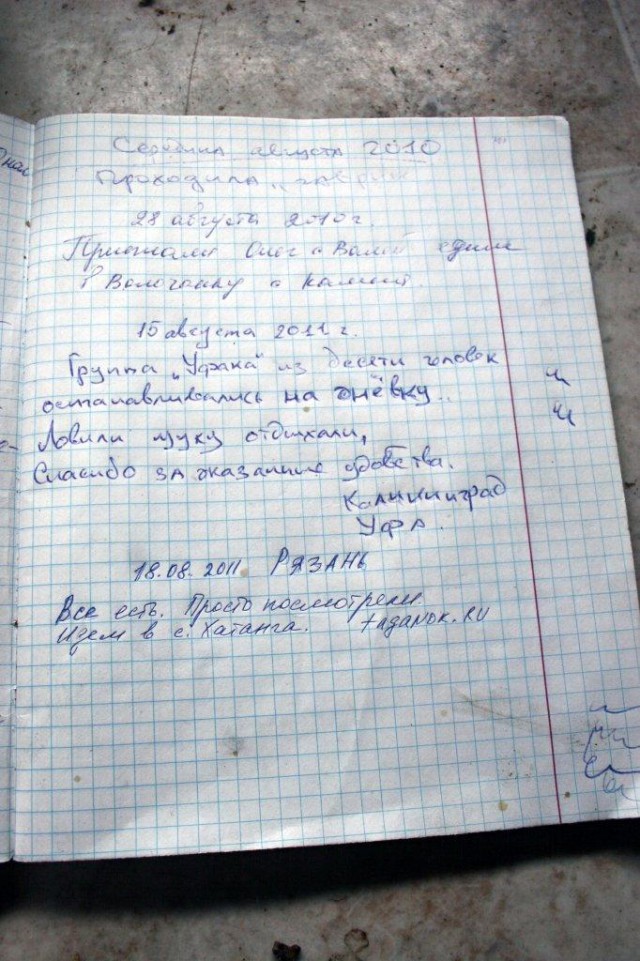 Середина августа 2010
Проходила
28 августа 2010 г.
Приезжали Олег с едим
в Волочанку с
15 августа 2011 г.
Группа „Уфана" из десяти человек
останавливались на днёвку..
Ловили щуку отдыхали,
Спасибо за оказанные удобства.
Калининград
УФА.
18.08.2011 РЯЗАНЬ
Все есть. Просто посмотрели
Идем в с. Хатанга. taganok.RU